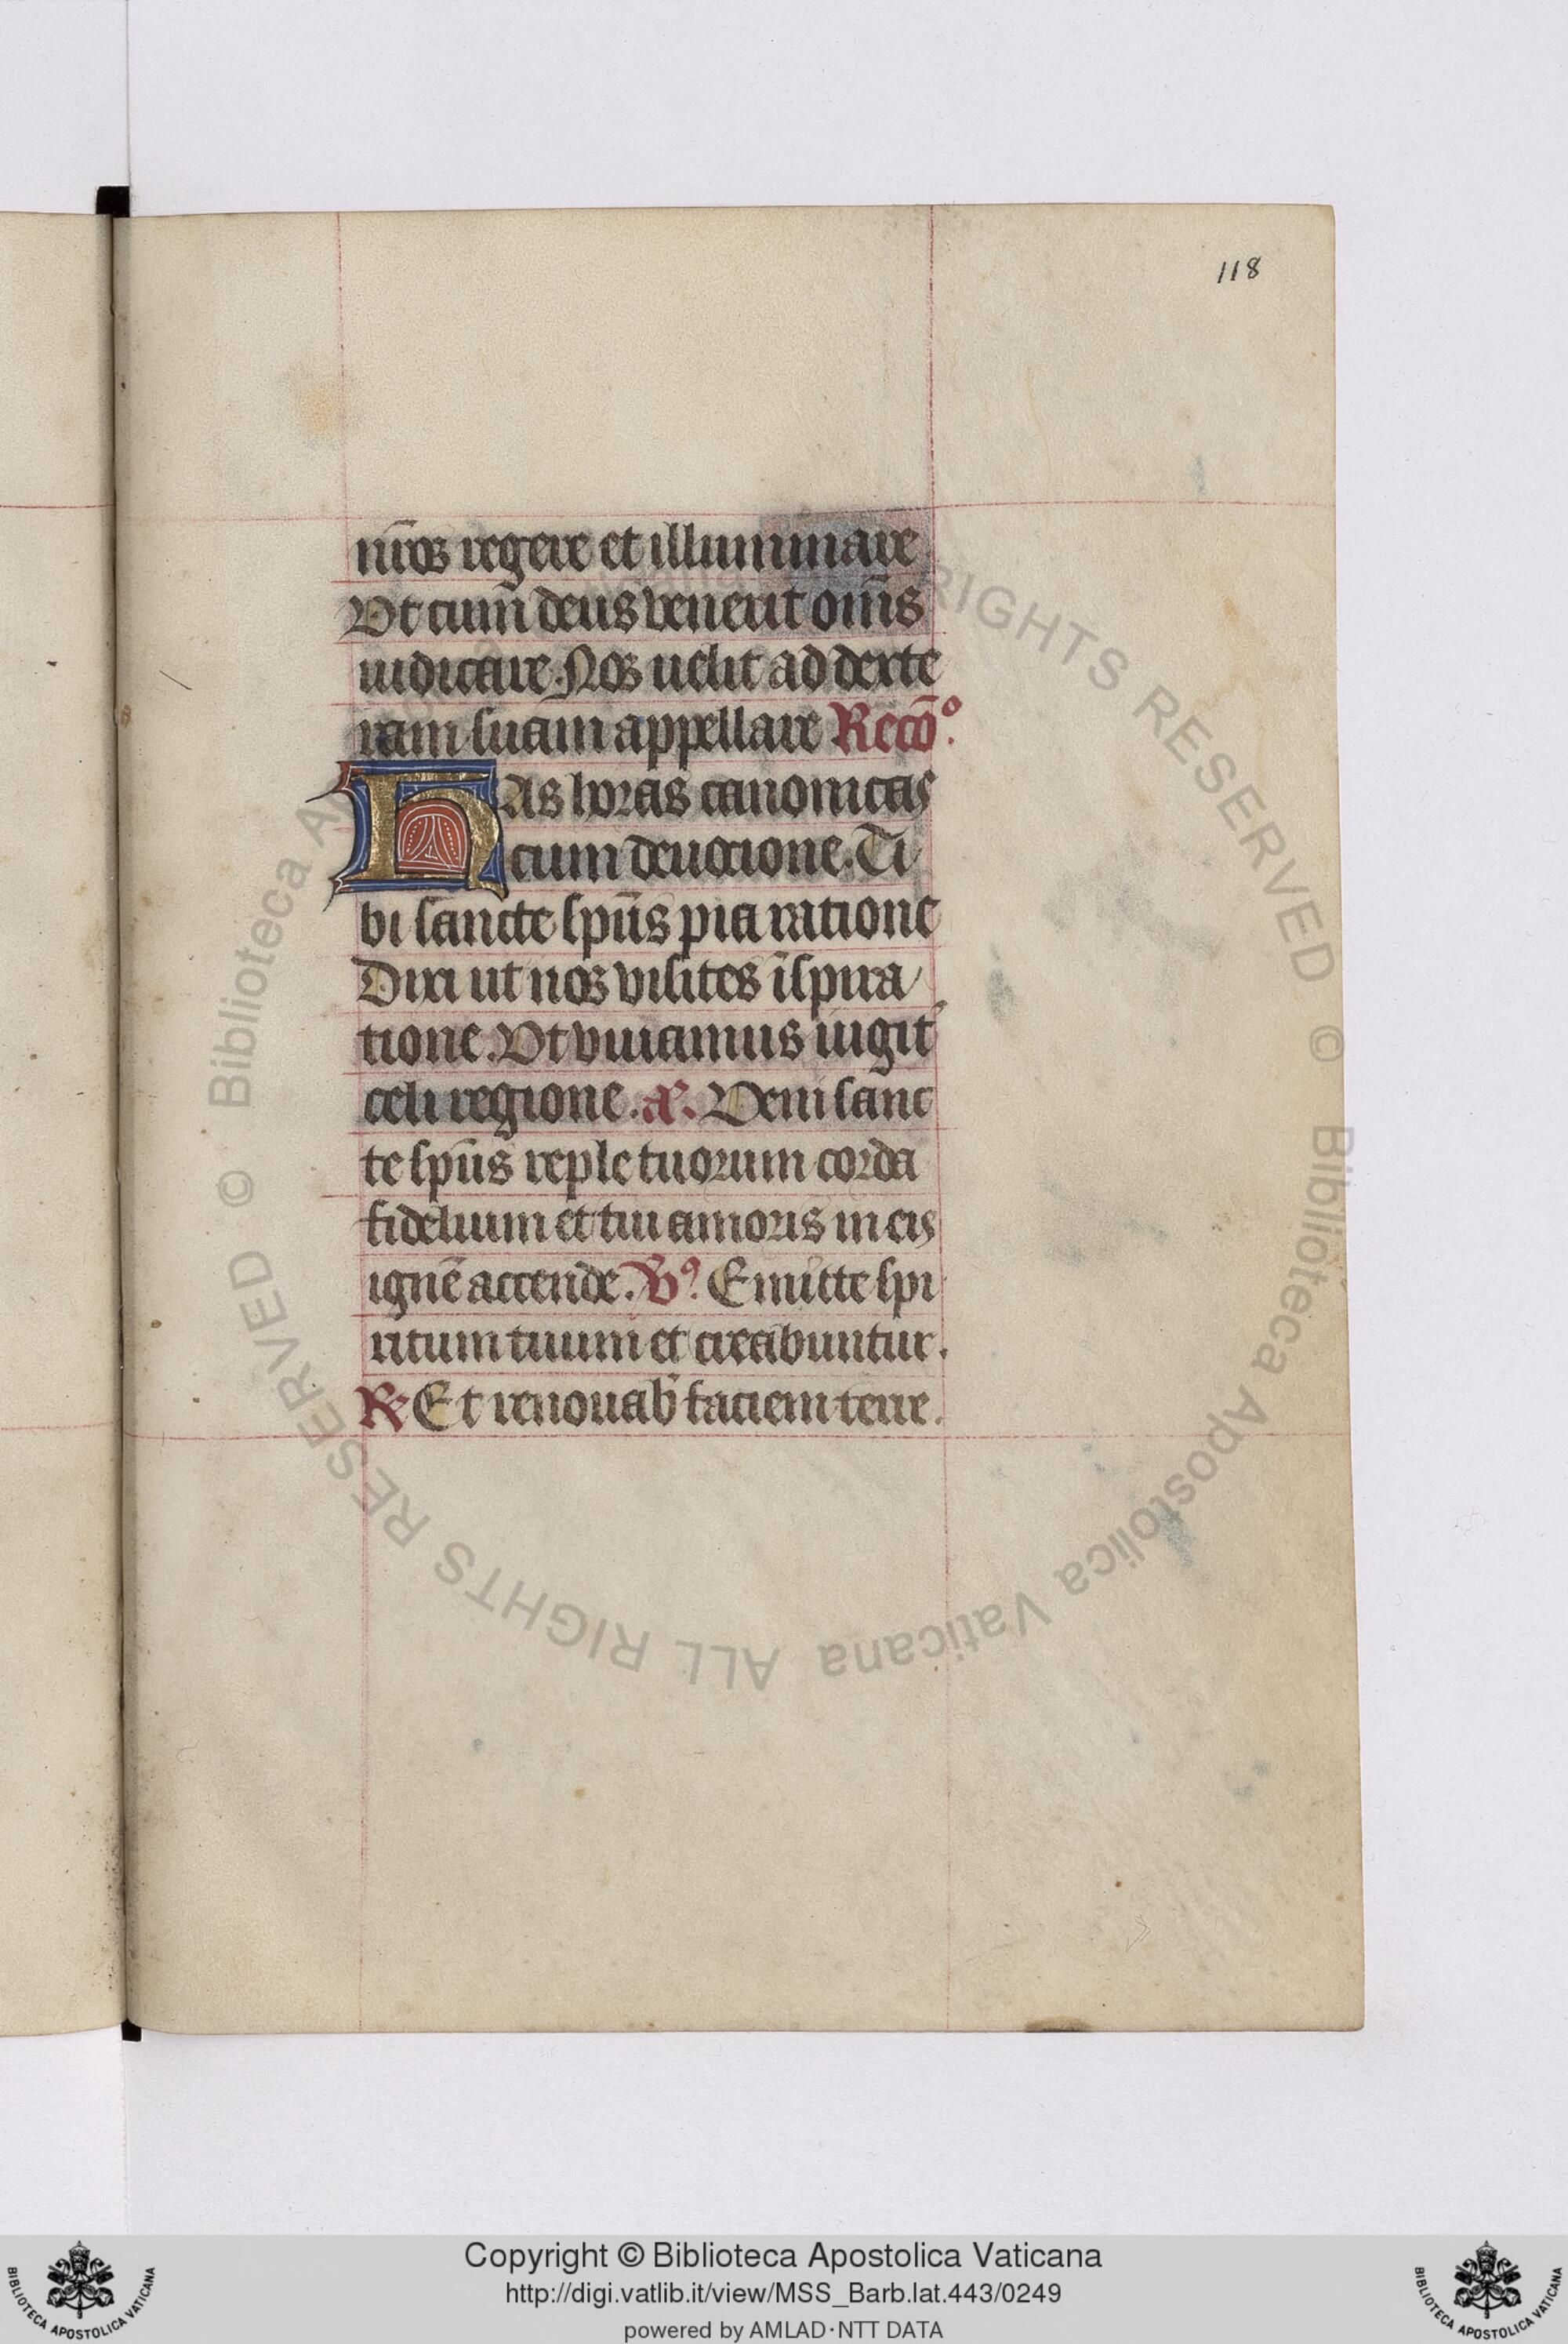 118
nr̄os regere et illuminare
Vt cum deus venerit om̄s
iudicare. Nos uelit ad dexte
ram suam appellare Recō°.
HAs horas canonicas
cum deuocione. Ti
bi sancte sp̄us pia ratione
Dixi ut nos visites īspira
tione. Vt viuiamus iugit᾽
celi regione. añ. Veni sanc
te sp̄us reple tuorum corda
fidelium et tui amoris in eis
ignē accende. Vꝰ. Emitte spi
ritum tuum et creabuntur.
℟ Et renouab᾽ faciem terre.
© Biblioteca Apostolica Vaticana ALL RIGHTS RESERVED © Biblioteca Apostolica Vaticana ALL RIGHTS RESERVED
Copyright © Biblioteca Apostolica Vaticana
http://digi.vatlib.it/view/MSS_Barb.lat.443/0249
powered by AMLAD·NTT DATA
BIBLIOTECA APOSTOLICA VATICANA
BIBLIOTECA APOSTOLICA VATICANA